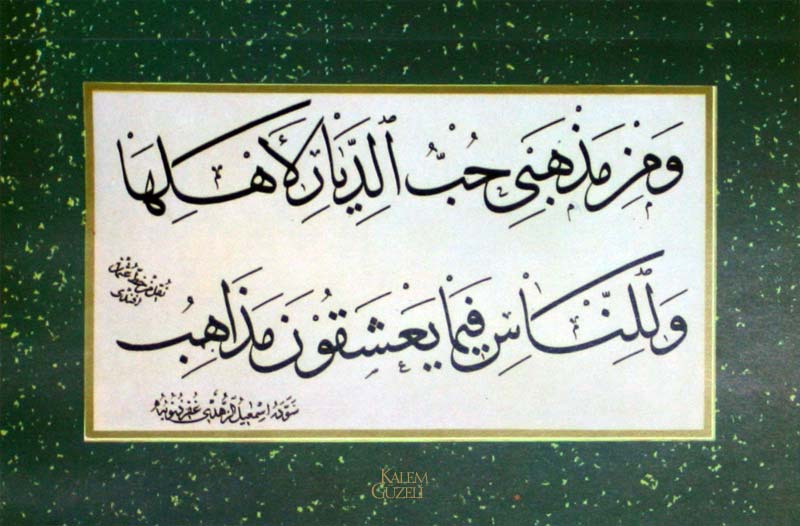 وَمِنْ مَذْهَبِي حُبُّ الدِّيَارِ لِأَهْلِهَا
وَلِلنَّاسِ فِيمَا يَعْشَقُونَ مَذَاهِبُ
نُقِلَ مِنْ خَطِّ عُثْمَان
افندى
سَوَّدَهُ اِسْمٰعِيلُ الزُّهْدِي غُفِرَ ذُنُوبُهُ
KALEM
GÜZELİ